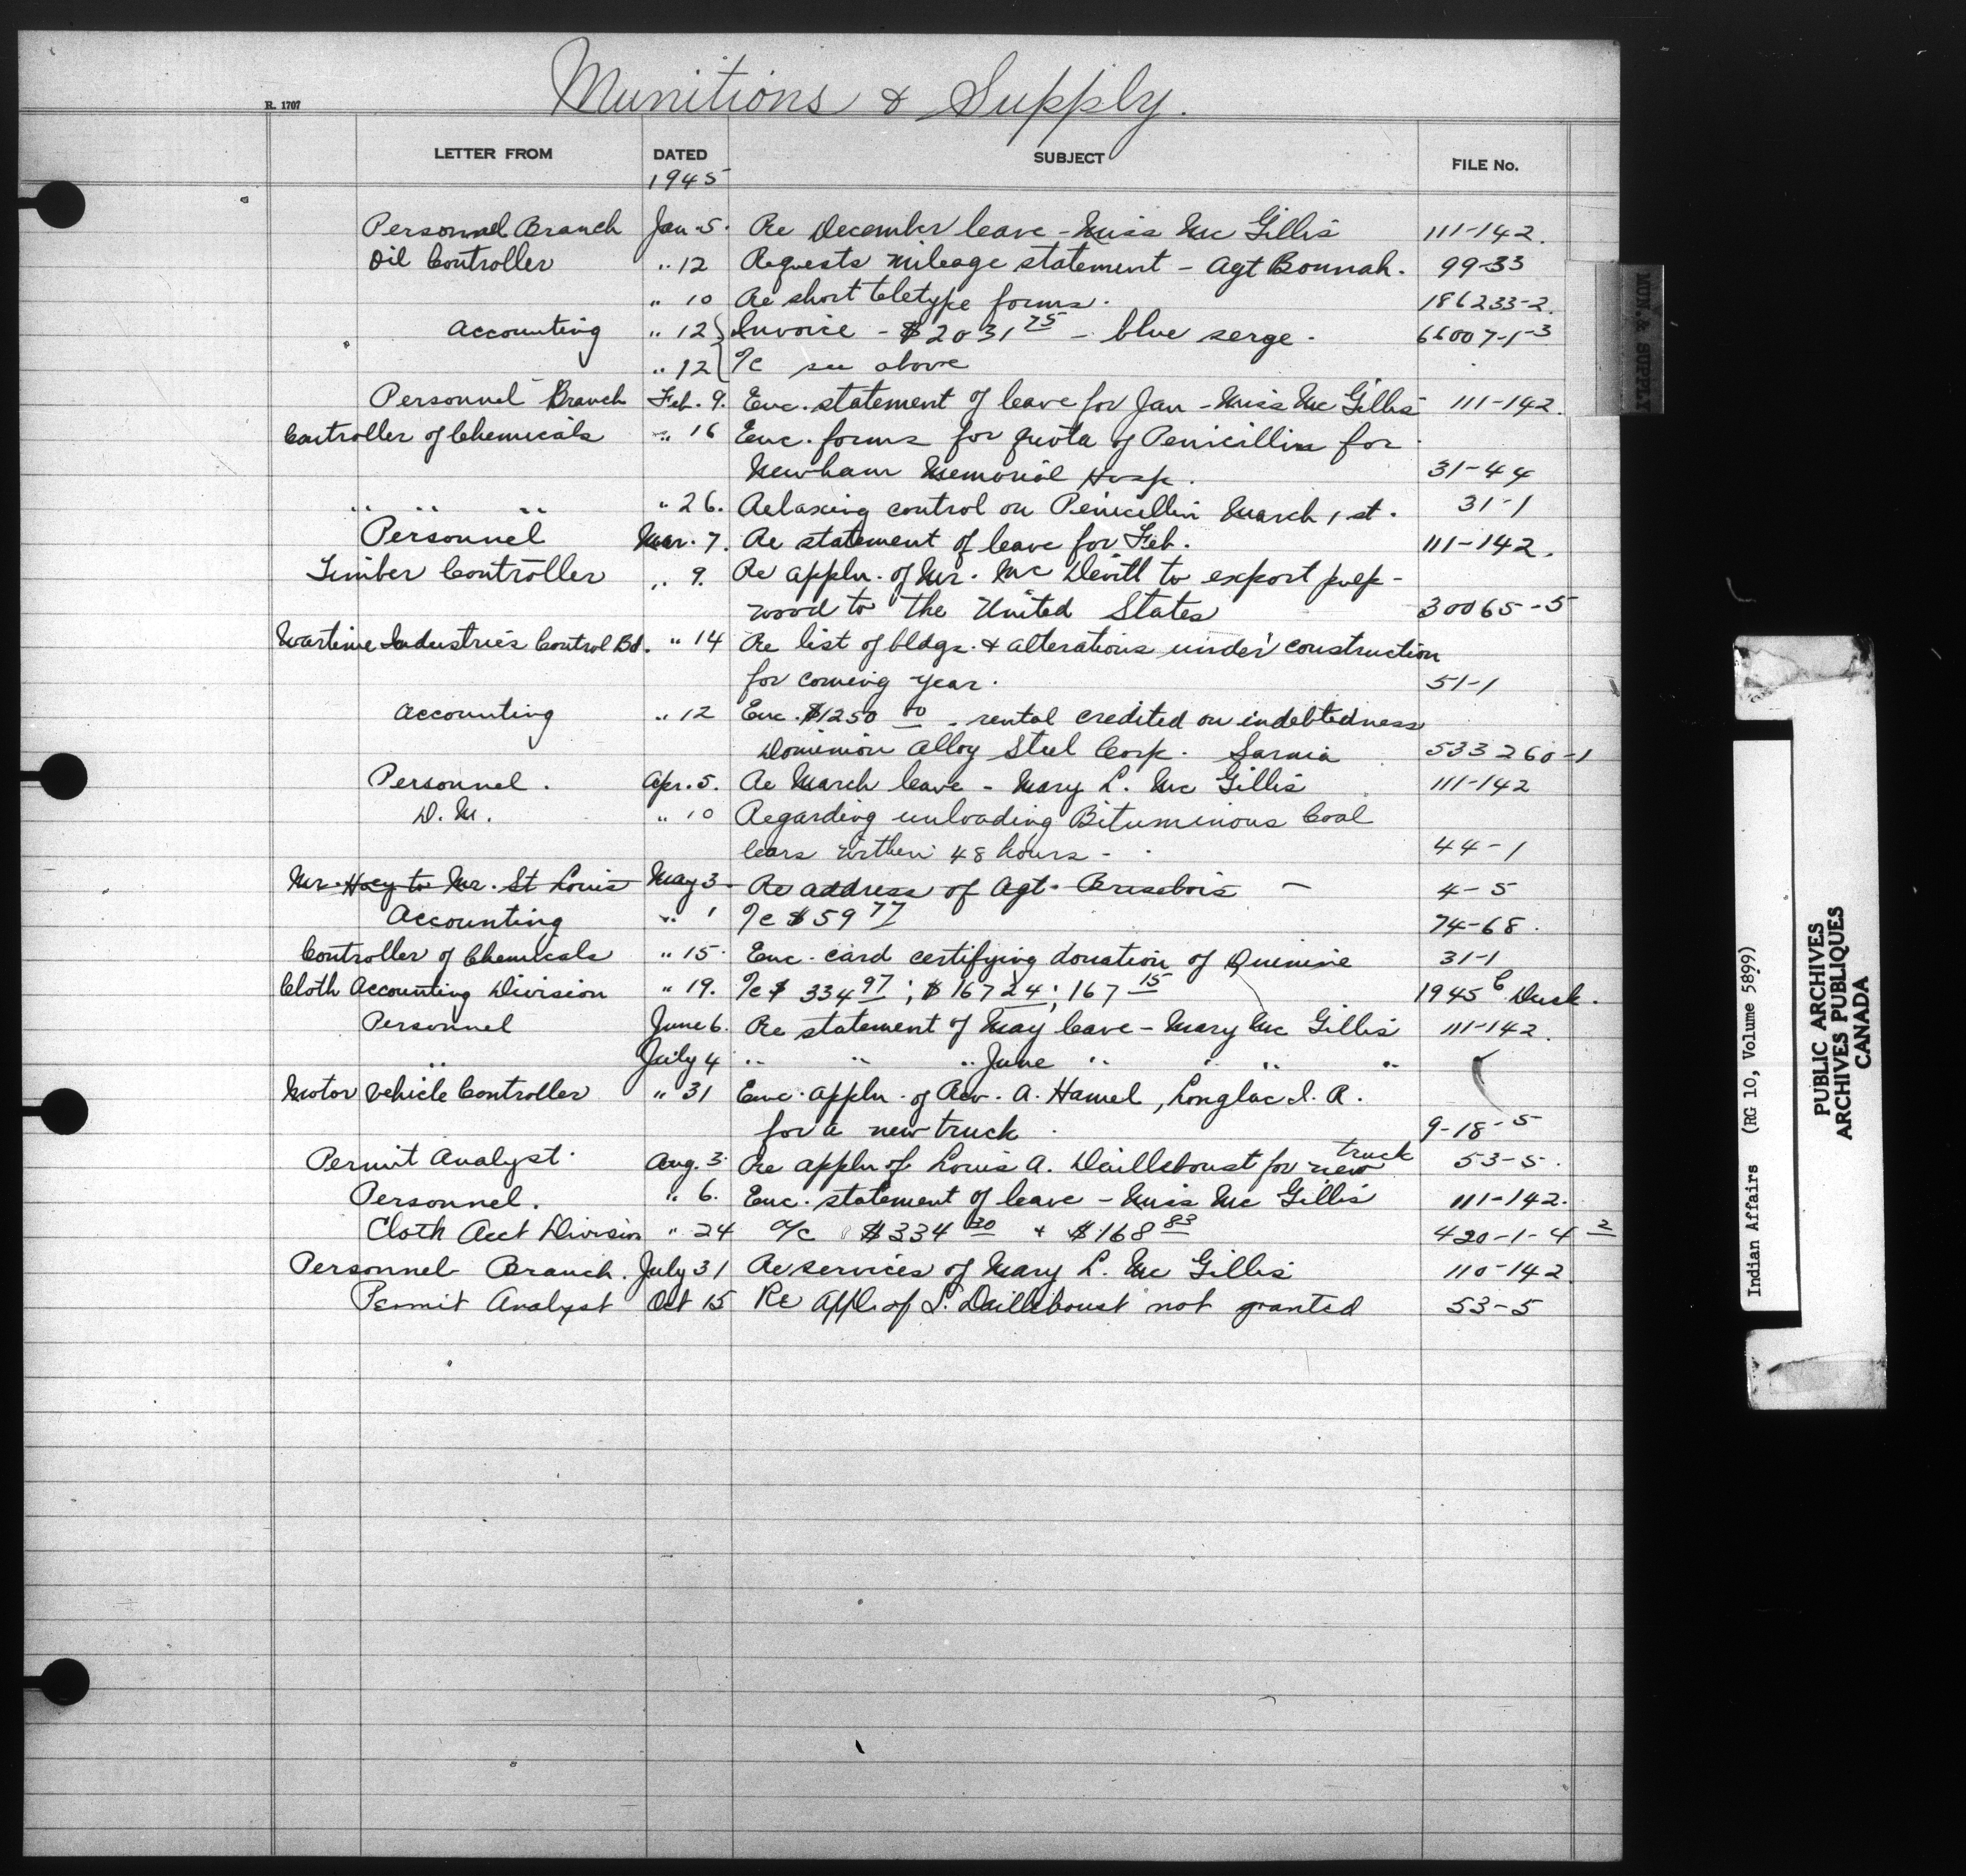 Munitions & Supply.
R. 1707
LETTER FROM DATED SUBJECT FILE No.
1945
Personnel Branch Jan. 5. Re December leave - Miss Mc Gillis 111-142.
Oil Controller " 12 Requests mileage statement - Agt Bonnah. 99-33
" 10 Re short teletype forms. 186233-2.
Accounting " 12 Invoice - $2031 75 - blue serge. 66007-1-3
" 12 o/c see above
Personnel Branch Feb. 9. Enc. statement of leave for Jan - Miss Mc Gillis 111-142.
Controller of Chemicals " 16 Enc. forms for quota of Penicillin for
Newham Memorial Hosp. 31-44
" " " " 26. Relaxing control on Penicillin March 1st. 31-1
Personnel Mar. 7. Re statement of leave for Feb. 111-142.
Timber Controller " 9. Re appln. of Mr. Mc Devitt to export pulp-
wood to the United States 30065-5
Wartime Industries Control Bd. " 14 Re list of bldgs. & alterations under construction
for coming year. 51-1
Accounting " 12 Enc. $1250 00 - rental credited on indebtedness
Dominion Alloy Steel Corp. Sarnia 533260-1
Personnel. Apr. 5. Re March leave - Mary L. Mc Gillis 111-142
D. M. " 10 Regarding unloading Bituminous Coal
Cars within 48 hours - 44-1
Mr. Hoey to Mr. St Louis May 3 - Re address of Agt. Brisebois - 4-5
Accounting " 1 o/c $59 77 74-68.
Controller of Chemicals " 15. Enc. card certifying donation of Quinine 31-1
Cloth Accounting Division " 19. o/c $334 97; $167 24; 167 15 1945 C Dusk.
Personnel June 6. Re statement of May leave - Mary Mc Gillis 111-142.
" July 4 " " " June " " " "
Motor Vehicle Controller " 31 Enc. appln. of Rev. A. Hamel, Longlac I. R.
for a new truck. 9-18-5
Permit Analyst. Aug. 3. Re appln of Louis A. Dailleboust for new truck 53-5.
Personnel. " 6. Enc. statement of leave - Miss Mc Gillis 111-142.
Cloth Acct Division " 24 o/c $334 30 & $168 83 420-1-4 2
Personnel Branch. July 31 Re services of Mary L. Mc Gillis 110-142
Permit Analyst Oct 15 Re Appl. of L. Dailleboust not granted 53-5
MUN. & SUPPLY
Indian Affairs (RG 10, Volume 5899)
PUBLIC ARCHIVES
ARCHIVES PUBLIQUES
CANADA